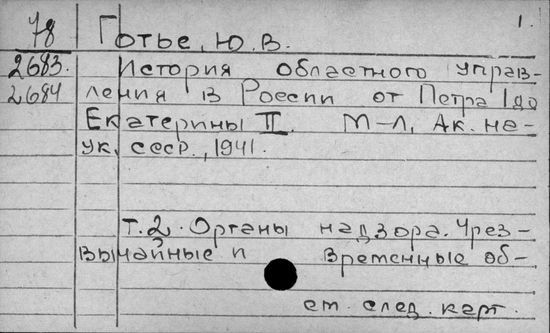 1.
78 Готье, Ю. В.
2683. История областного управ-
2684 ления в России от Петра I до
Екатерины II. М-Л, Ак. на-
ук, СССР., 1941.
Т. 2. Органы надзора. Чрез-
вычайные и временные об-
см. след. карт.